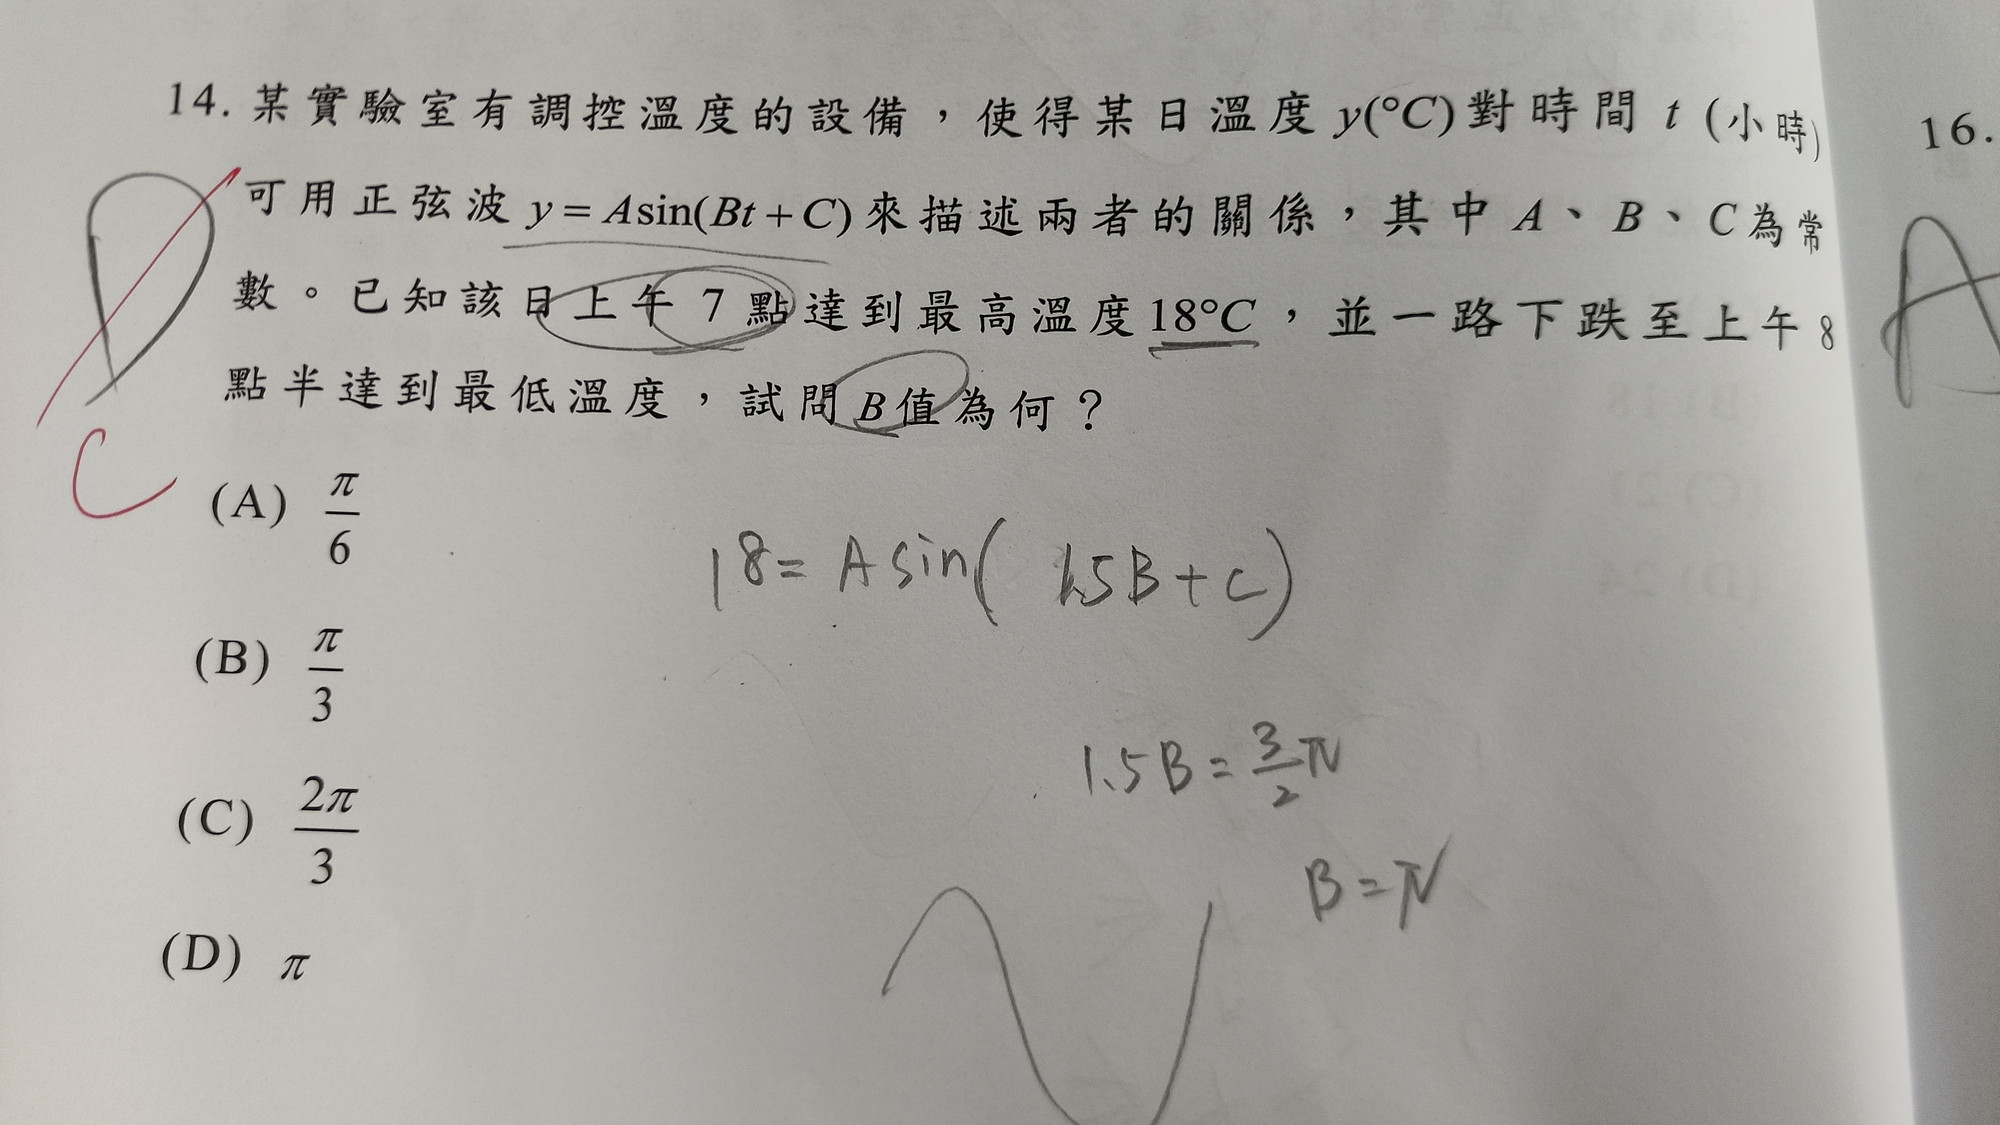 14. 某實驗室有調控溫度的設備，使得某日溫度 y(°C)對時間 t (小時)
可用正弦波 y = A sin(Bt + C) 來描述兩者的關係，其中 A、B、C為常
數。已知該日上午 7 點達到最高溫度18°C，並一路下跌至上午 8
點半達到最低溫度，試問 B 值為何？
D
C
(A) π/6
(B) π/3
(C) 2π/3
(D) π
18 = A sin( 1.5B + C )
1.5B = 3/2 π
B = π
16.
A